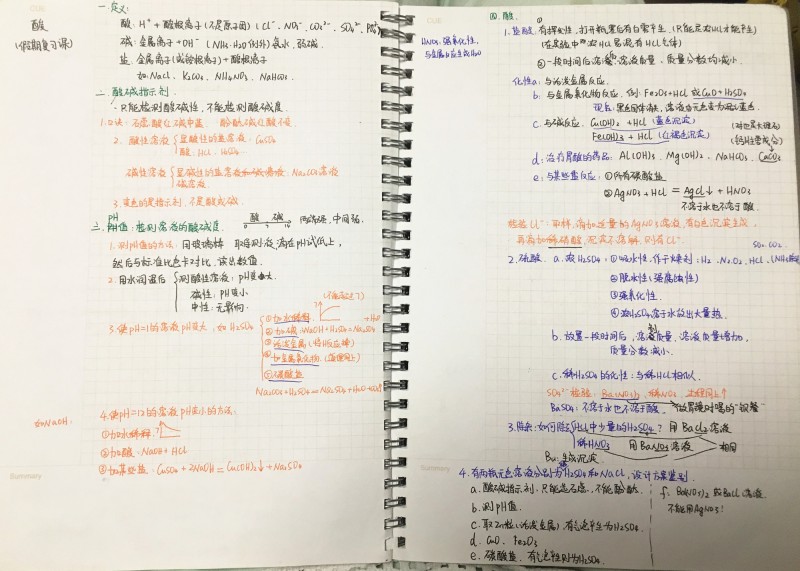 酸
(假期复习课)
一.定义:
酸: H⁺ + 酸根离子 (不是原子团) (Cl⁻, NO₃⁻, CO₃²⁻, SO₄²⁻, PO₄³⁻)
碱: 金属离子 + OH⁻ (NH₃·H₂O例外) 氨水, 弱碱.
盐: 金属离子(或铵根离子) + 酸根离子
如: NaCl, K₂CO₃, NH₄NO₃, NaHCO₃
二.酸碱指示剂.
·只能检测酸碱性, 不能检测酸碱度.
1.口诀: 石蕊酸红碱中蓝 酚酞碱红酸不变
2. 酸性溶液 显酸性的盐溶液: CuSO₄
酸: HCl, H₂SO₄
碱性溶液 显碱性的盐溶液: Na₂CO₃溶液
碱溶液
3.变色的是指示剂, 不是酸或碱.
三.pH值: 检测溶液的酸碱度. 酸 碱 0 7 14 两端强, 中间弱.
1.测pH值的方法: 用玻璃棒 取待测液滴在pH试纸上,
然后与标准比色卡对比, 读出数值.
2.用水润湿后 测酸性溶液: pH变大.
碱性: pH变小
中性: 无影响.
3.使pH=1的溶液pH变大, 如H₂SO₄ (不能超过7)
①加水稀释
②加碱: NaOH + H₂SO₄ = Na₂SO₄ + H₂O
③活泼金属
④加金属氧化物
⑤碳酸盐
Na₂CO₃ + H₂SO₄ = Na₂SO₄ + H₂O + CO₂↑
如NaOH:
4.使pH=12的溶液pH变小的方法:
①加水稀释
②加酸: NaOH + HCl
③加某些盐: CuSO₄ + 2NaOH = Cu(OH)₂↓ + Na₂SO₄
四.酸
1.盐酸: ①有挥发性, 打开瓶塞后有白雾产生. (只能是浓HCl才能产生)
②一段时间后溶质, 溶液质量, 质量分数均减小.
HNO₃: 强氧化性,
与金属反应生成H₂O
化性a: 与活泼金属反应.
b: 与金属氧化物反应. 例: Fe₂O₃+HCl 或 CuO+H₂SO₄
现象: 黑色固体消失, 溶液由无色变为蓝色.
c: 与碱反应. Cu(OH)₂ + HCl (蓝色沉淀)
Fe(OH)₃ + HCl (红褐色沉淀)
d: 治疗胃酸的药品: Al(OH)₃, Mg(OH)₂, NaHCO₃, CaCO₃
e: 与某些盐反应: ①所有碳酸盐
②AgNO₃ + HCl = AgCl↓ + HNO₃
不溶于水也不溶于酸.
检验Cl⁻: 取样, 滴加适量的AgNO₃溶液, 有白色沉淀生成,
再滴加稀硝酸, 沉淀不溶解, 则有Cl⁻.
SO₂, CO₂
2.硫酸. a. 浓H₂SO₄: ①吸水性. 作干燥剂: H₂, N₂, O₂, HCl,
②脱水性 (强腐蚀性)
③强氧化性.
④浓H₂SO₄溶于水放出大量热.
b. 放置一段时间后, 溶剂质量, 溶液质量增加,
质量分数减小.
c. 稀H₂SO₄的化性: 与稀HCl相似.
SO₄²⁻检验: Ba(NO₃)₂, 稀HNO₃
BaSO₄: 不溶于水也不溶于酸. 做胃镜时喝的"钡餐"
3.除杂: 如何除去HCl中少量的H₂SO₄? 用BaCl₂溶液
稀HNO₃ 用Ba(NO₃)₂溶液 相同
Ba: 生成沉淀.
4.有两瓶无色溶液分别为H₂SO₄和NaCl, 设计方案鉴别
a. 酸碱指示剂, 只能选石蕊, 不能酚酞.
b. 测pH值.
c. 取Zn粒(活泼金属), 有气泡产生为H₂SO₄.
d. CuO, Fe₂O₃
e. 碳酸盐, 有气泡产生则为H₂SO₄.
f. Ba(NO₃)₂ 或BaCl₂溶液
不能用AgNO₃!
Summary
Summary